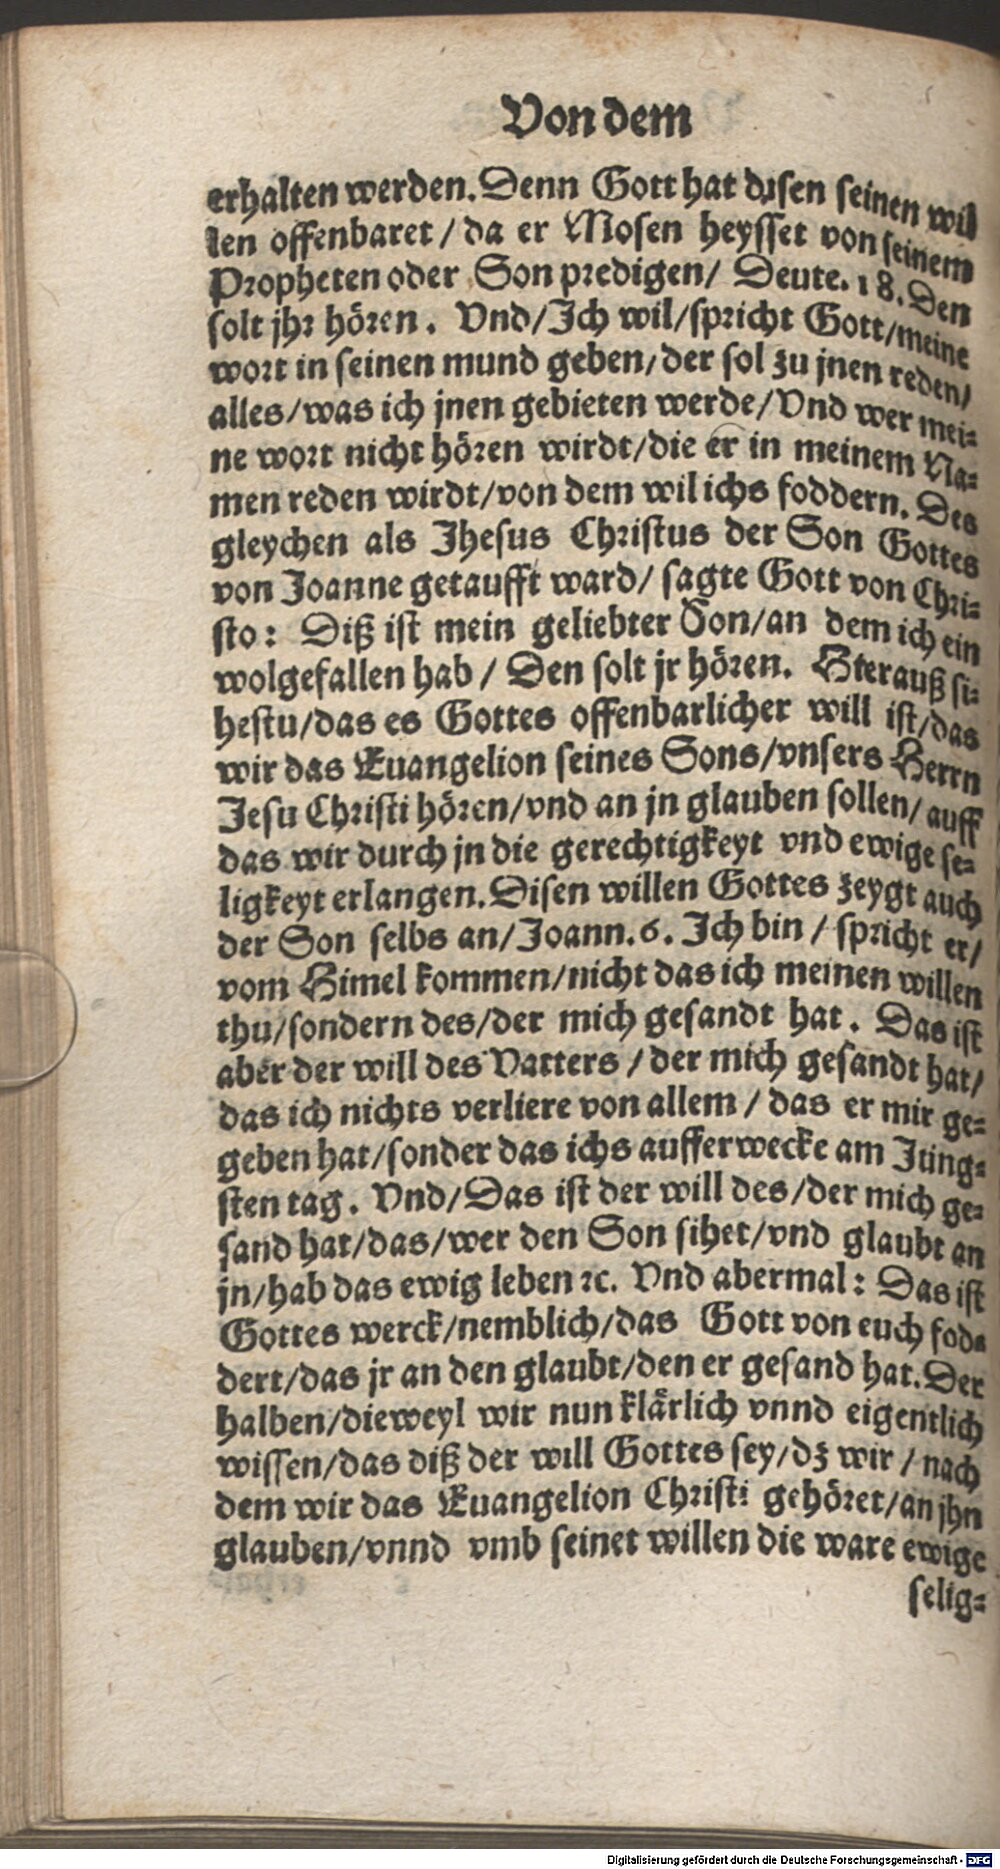 Von dem
erhalten werden. Denn Gott hat disen seinen wil
len offenbaret / da er Mosen heysset von seinem
Propheten oder Son predigen / Deute. 18. Den
solt jhr hören. Vnd/Ich wil/spricht Gott/meine
wort in seinen mund geben/der sol zu jnen reden/
alles/was ich jnen gebieten werde/Vnd wer mei-
ne wort nicht hören wirdt/die er in meinem Na-
men reden wirdt/von dem wil ichs foddern. Des
gleychen als Jhesus Christus der Son Gottes
von Joanne getaufft ward/ sagte Gott von Chri-
sto: Diß ist mein geliebter Son/an dem ich ein
wolgefallen hab / Den solt jr hören. Hierauß si-
hestu/das es Gottes offenbarlicher will ist/das
wir das Euangelion seines Sons/vnsers Herrn
Jesu Christi hören/vnd an jn glauben sollen/ auff
das wir durch jn die gerechtigkeyt vnd ewige se-
ligkeyt erlangen. Disen willen Gottes zeygt auch
der Son selbs an/Joann. 6. Ich bin / spricht er/
vom Himel kommen/nicht das ich meinen willen
thu/sondern des/der mich gesandt hat. Das ist
aber der will des Vatters / der mich gesandt hat/
das ich nichts verliere von allem / das er mir ge-
geben hat/sonder das ichs aufferwecke am Jüng-
sten tag. Vnd/Das ist der will des/der mich ge-
sand hat/das/wer den Son sihet/vnd glaubt an
jn/hab das ewig leben ꝛc. Vnd abermal: Das ist
Gottes werck/nemblich/das Gott von euch fod-
dert/das jr an den glaubt/den er gesand hat. Der
halben/dieweyl wir nun klärlich vnnd eigentlich
wissen/das diß der will Gottes sey/dz wir / nach
dem wir das Euangelion Christi gehöret/an jhn
glauben/vnnd vmb seinet willen die ware ewige
selig-
Digitalisierung gefördert durch die Deutsche Forschungsgemeinschaft - DFG